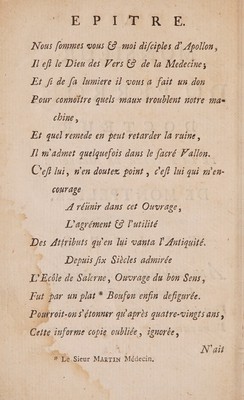 EPITRE.
Nous sommes vous & moi disciples d'Apollon,
Il est le Dieu des Vers & de la Medecine;
Et si de sa lumiere il vous a fait un don
Pour connoître quels maux troublent notre ma-
chine,
Et quel remede en peut retarder la ruine,
Il m'admet quelquefois dans le sacré Vallon.
C'est lui, n'en doutez point, c'est lui qui m'en-
courage
A réünir dans cet Ouvrage,
L'agrément & l'utilité
Des Attributs qu'en lui vanta l'Antiquité.
Depuis six Siècles admirée
L'Ecole de Salerne, Ouvrage du bon Sens,
Fut par un plat * Boufon enfin defigurée.
Pourroit-on s'étonner qu'après quatre-vingts ans,
Cette informe copie oubliée, ignorée,
N'ait
* Le Sieur MARTIN Médecin.